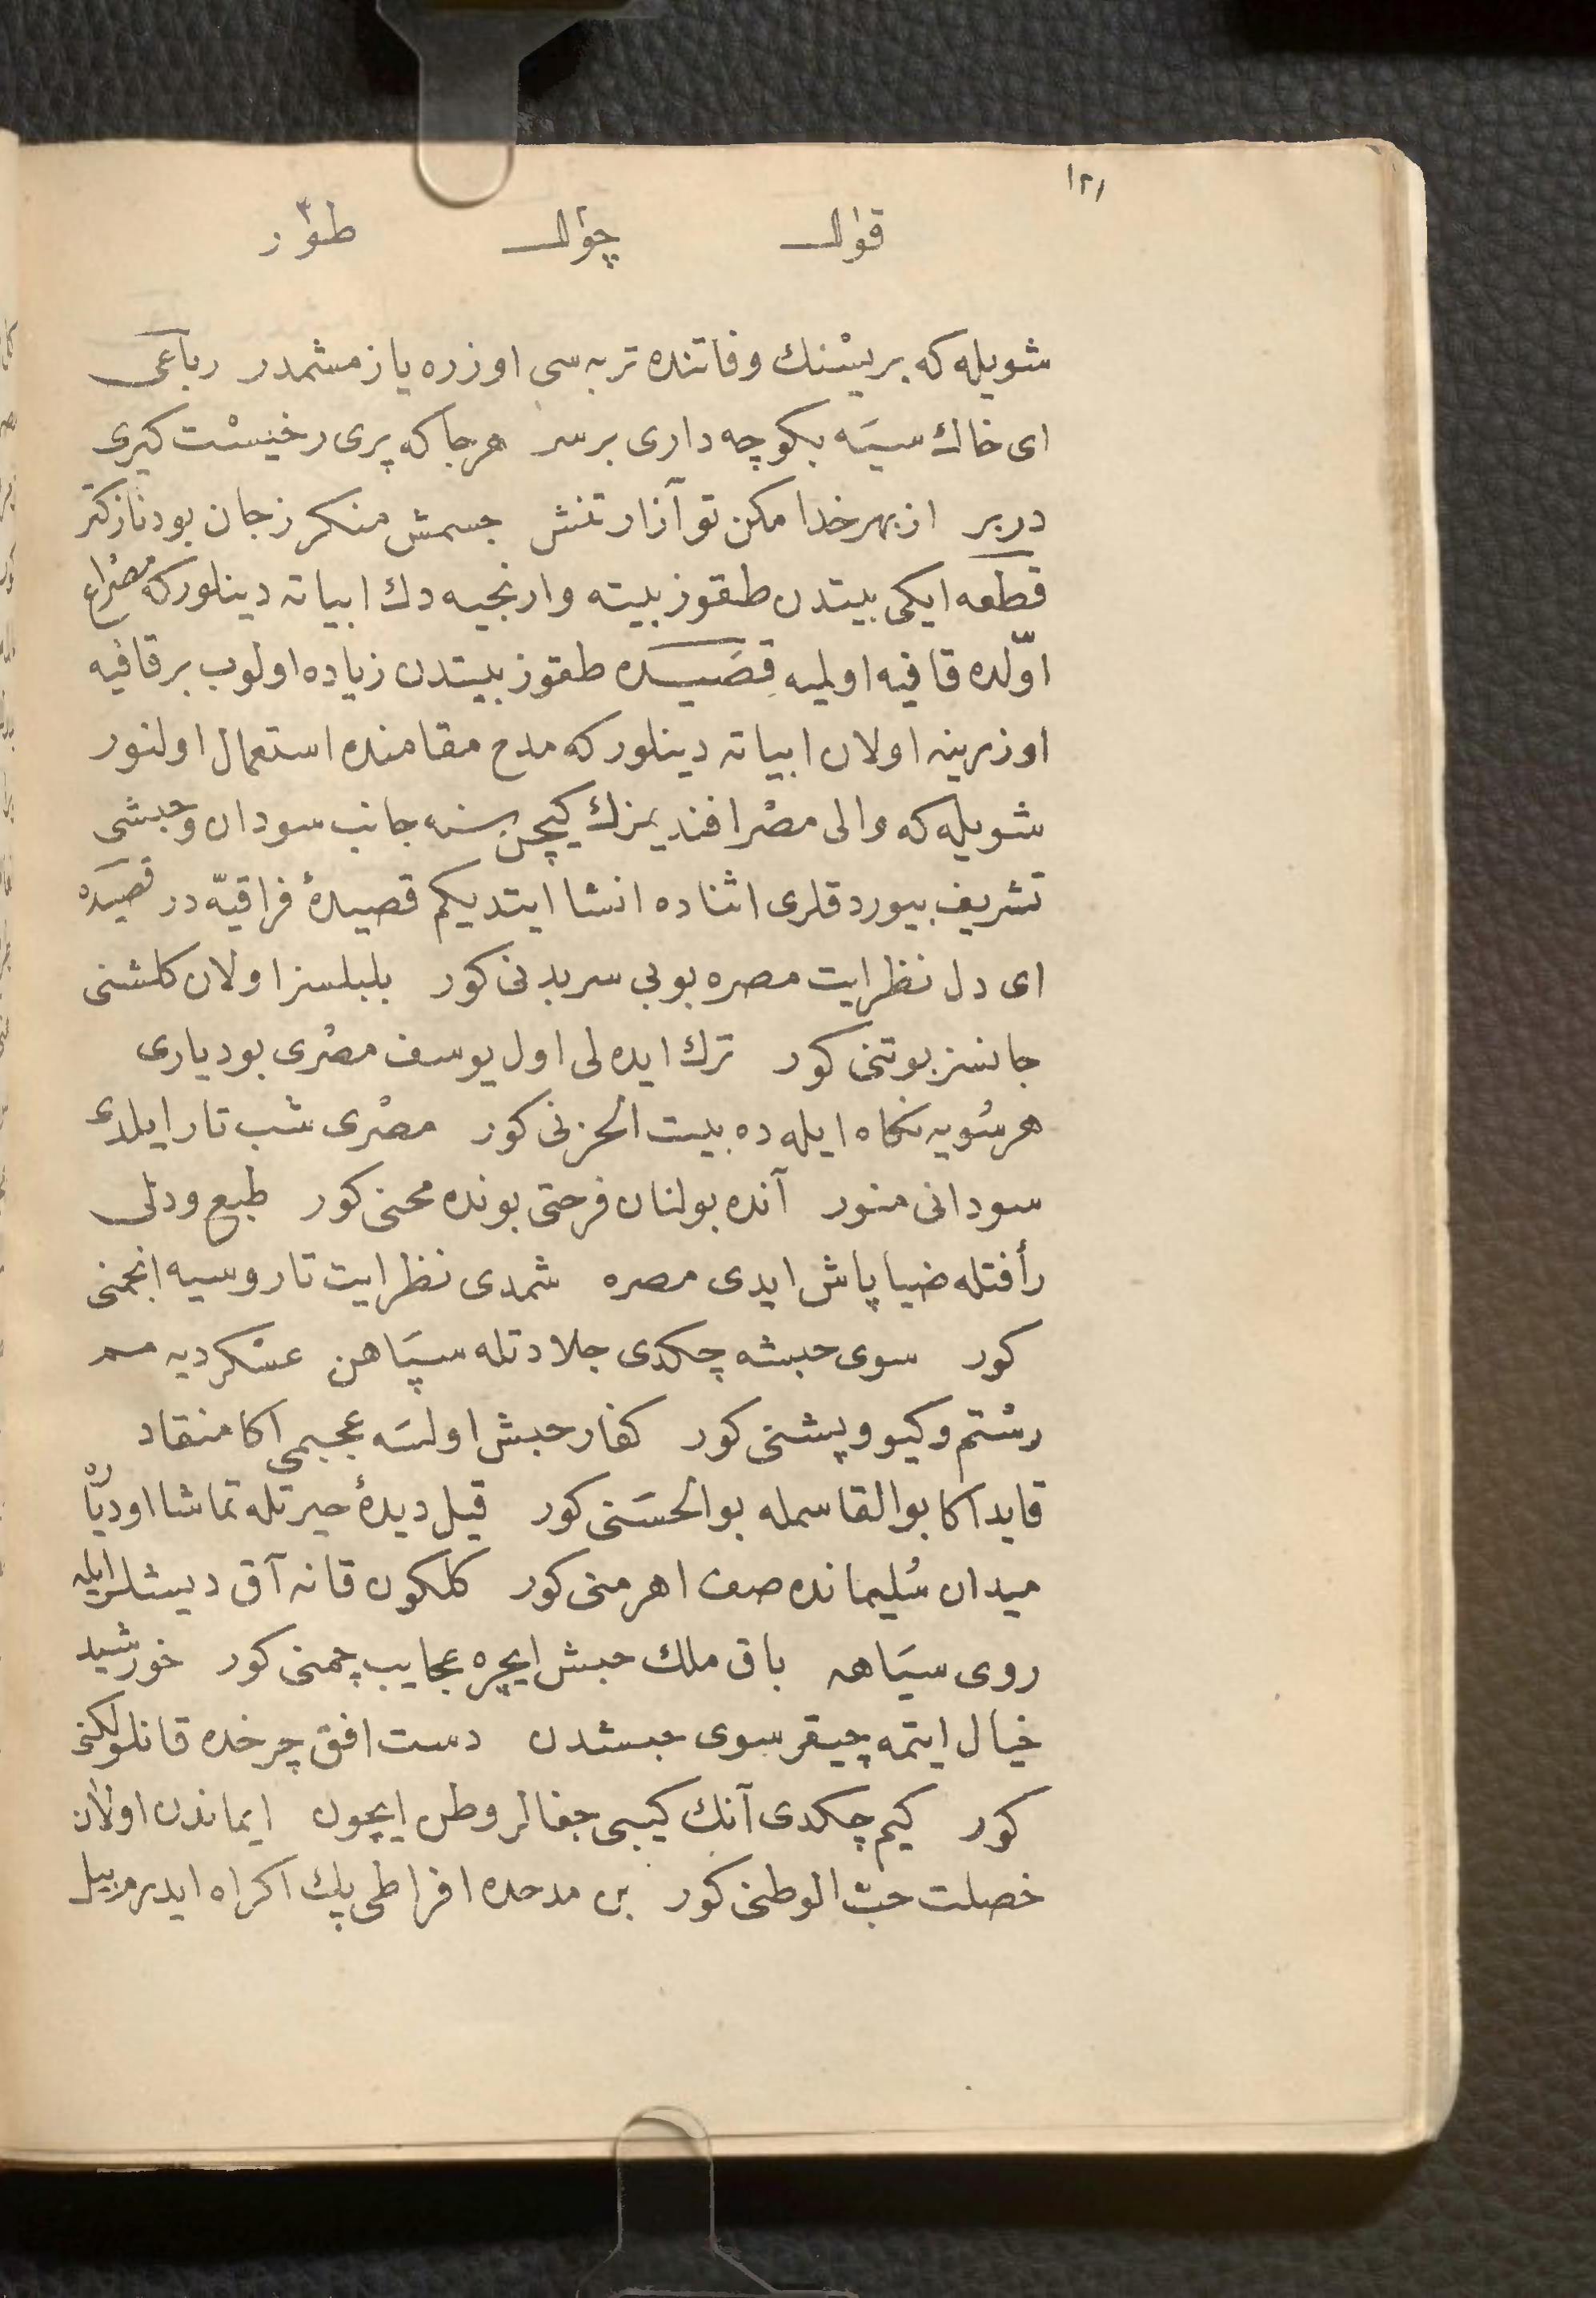 ١٢١
قوال چوال طوار
شويله كه بريسْنك وفاتنده تربه سى اوزره يازمشمدر رباعى
اى خاك سيَه بكو چه دارى بر سر هرجا كه پرى رخيسْت كيرى
در بر از بهر خدا مكن تو آزار تنش جسمش منكر ز جان بود نازكتر
قطعه ايكى بيتدن طقوز بيته وارنجيه دك ابياته دينلور كه مصْراع
اوّلده قافيه اولميه قصَيده طقوز بيتدن زياده اولوب بر قافيه
اوزرينه اولان ابياته دينلور كه مدح مقامنده استعمال اولنور
شويله كه والى مصْر افنديمزك كيچن سنه جانب سودان وحبشى
تشريف بيوردقلرى اثناده انشا ايتديكم قصيدهٔ فراقيّه در قصيده
اى دل نظر ايت مصره بو بى سر بدنى كور بلبلسز اولان كلشنى
جانسز بو تنى كور ترك ايده لى اول يوسف مصْرى بو ديارى
هر سُويه نكاه ايله ده بيت الحزنى كور مصْرى شب تار ايلدى
سودانى منور آنده بولنان فرحتى بونده محنى كور طبع ودلى
رأفتله ضيا پاش ايدى مصره شمدى نظر ايت تار وسيه انجمنى
كور سوى حبشه چكدى جلادتله سپَاهن عسْكر ديه مه
رسْتم وكيو وپشنى كور كفار حبش اولسَه عجبمى اكا منقاد
قايد اكا بو القاسمله بو الحسَنى كور قيل ديدهٔ حيرتله تماشا او ديارْه
ميدان سُليمانده صف اهرمنى كور كلكون قانه آق ديشلر ايله
روى سيَاهه باق ملك حبش ايچره عجايب چمنى كور خورشيد
خيال ايتمه چيقر سوى حبشدن دست افق چرخده قانلو لكنى
كور كيم چكدى آنك كيبى جفالر وطن ايچون ايماندن اولان
خصلت حبّ الوطنى كور بن مدحده افراطى پك اكراه ايدرم بيل